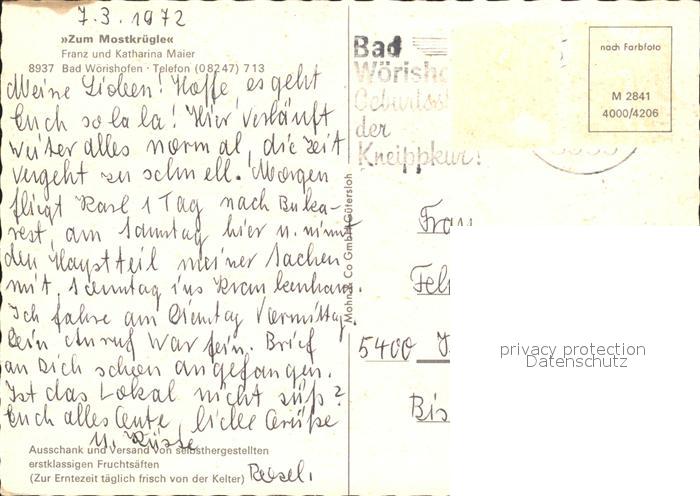 7.3.1972
»Zum Mostkrügle«
Franz und Katharina Maier
8937 Bad Wörishofen · Telefon (08247) 713
Meine Lieben! Hoffe, es geht
Euch so la la! Hier verläuft
weiter alles normal, die Zeit
vergeht zu schnell. Morgen
fliegt Karl 1 Tag nach Buka-
rest, am Samstag hier u. nimmt
den Hauptteil meiner Sachen
mit, Sonntag ins Krankenhaus.
Ich fahre am Dienstag Vormittag.
Dein Anruf war fein. Brief
an Dich schon angefangen.
Ist das Lokal nicht süß?
Euch alles Gute, liebe Grüße
u. Küsse
Ausschank und Versand von selbsthergestellten
erstklassigen Fruchtsäften
(Zur Erntezeit täglich frisch von der Kelter)
Mohn & Co GmbH Gütersloh
Bad
Wörisho
Geburts
der
Kneippkur!
nach Farbfoto
M 2841
4000/4206
Frau
Fel
5400
Bis
privacy protection
Datenschutz